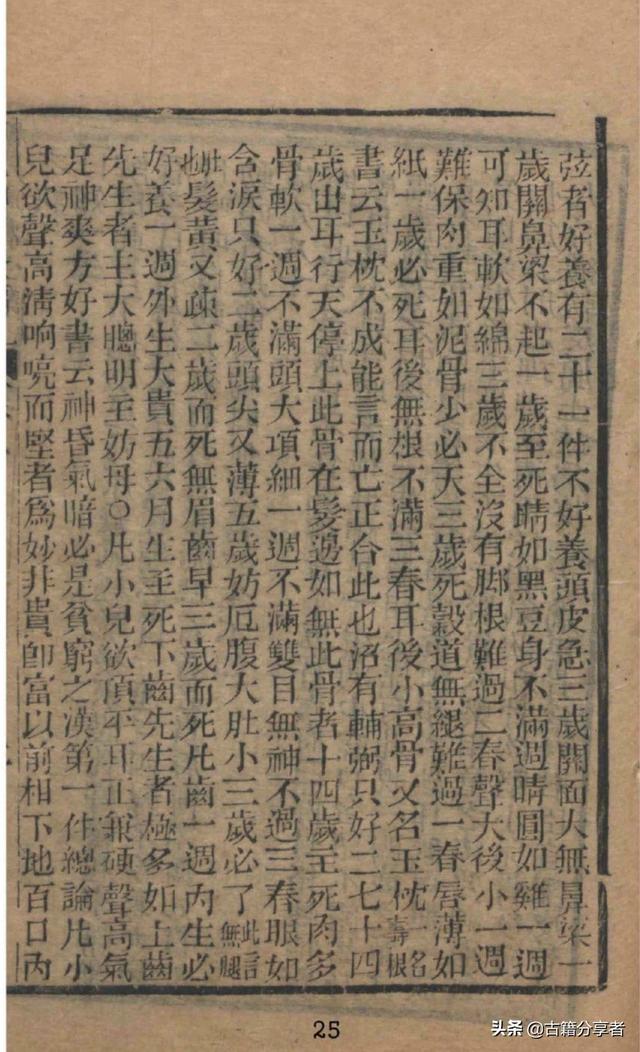 弦者好養有二十一件不好養頭皮急三歲關面大無鼻梁一
歲關鼻梁不起一歲至死睛如黑豆身不滿週睛圓如雞一週
可知耳軟如綿三歲不全沒有脚根難過二春聲大後小一週
難保肉重如泥骨少必夭三歲死穀道無縫難過一春唇薄如
紙一歲必死耳後無根不滿三春耳後小高骨又名玉枕一名壽根
書云玉枕不成能言而亡正合此也沼有輔弼只好二七十四
歲山耳行天停上此骨在髮邊如無此骨者十四歲主死肉多
骨軟一週不滿頭大項細一週不滿雙目無神不過三春眼如
含淚只好二歲頭尖又薄五歲妨厄腹大肚小三歲必了此言無腿
肚髮黃又疎二歲而死無眉齒早三歲而死凡齒一週內生必
好養一週外生大貴五六月生至死下齒先生者極多如上齒
先生者主大聰明主妨母○凡小兒欲頂平耳正報硬聲高氣
足神爽方好書云神昏氣暗必是貧窮之漢第一件總論凡小
兒欲聲高淸响喨而堅者爲妙非貴卽富以前相下地百口內
25
头条 @古籍分享者